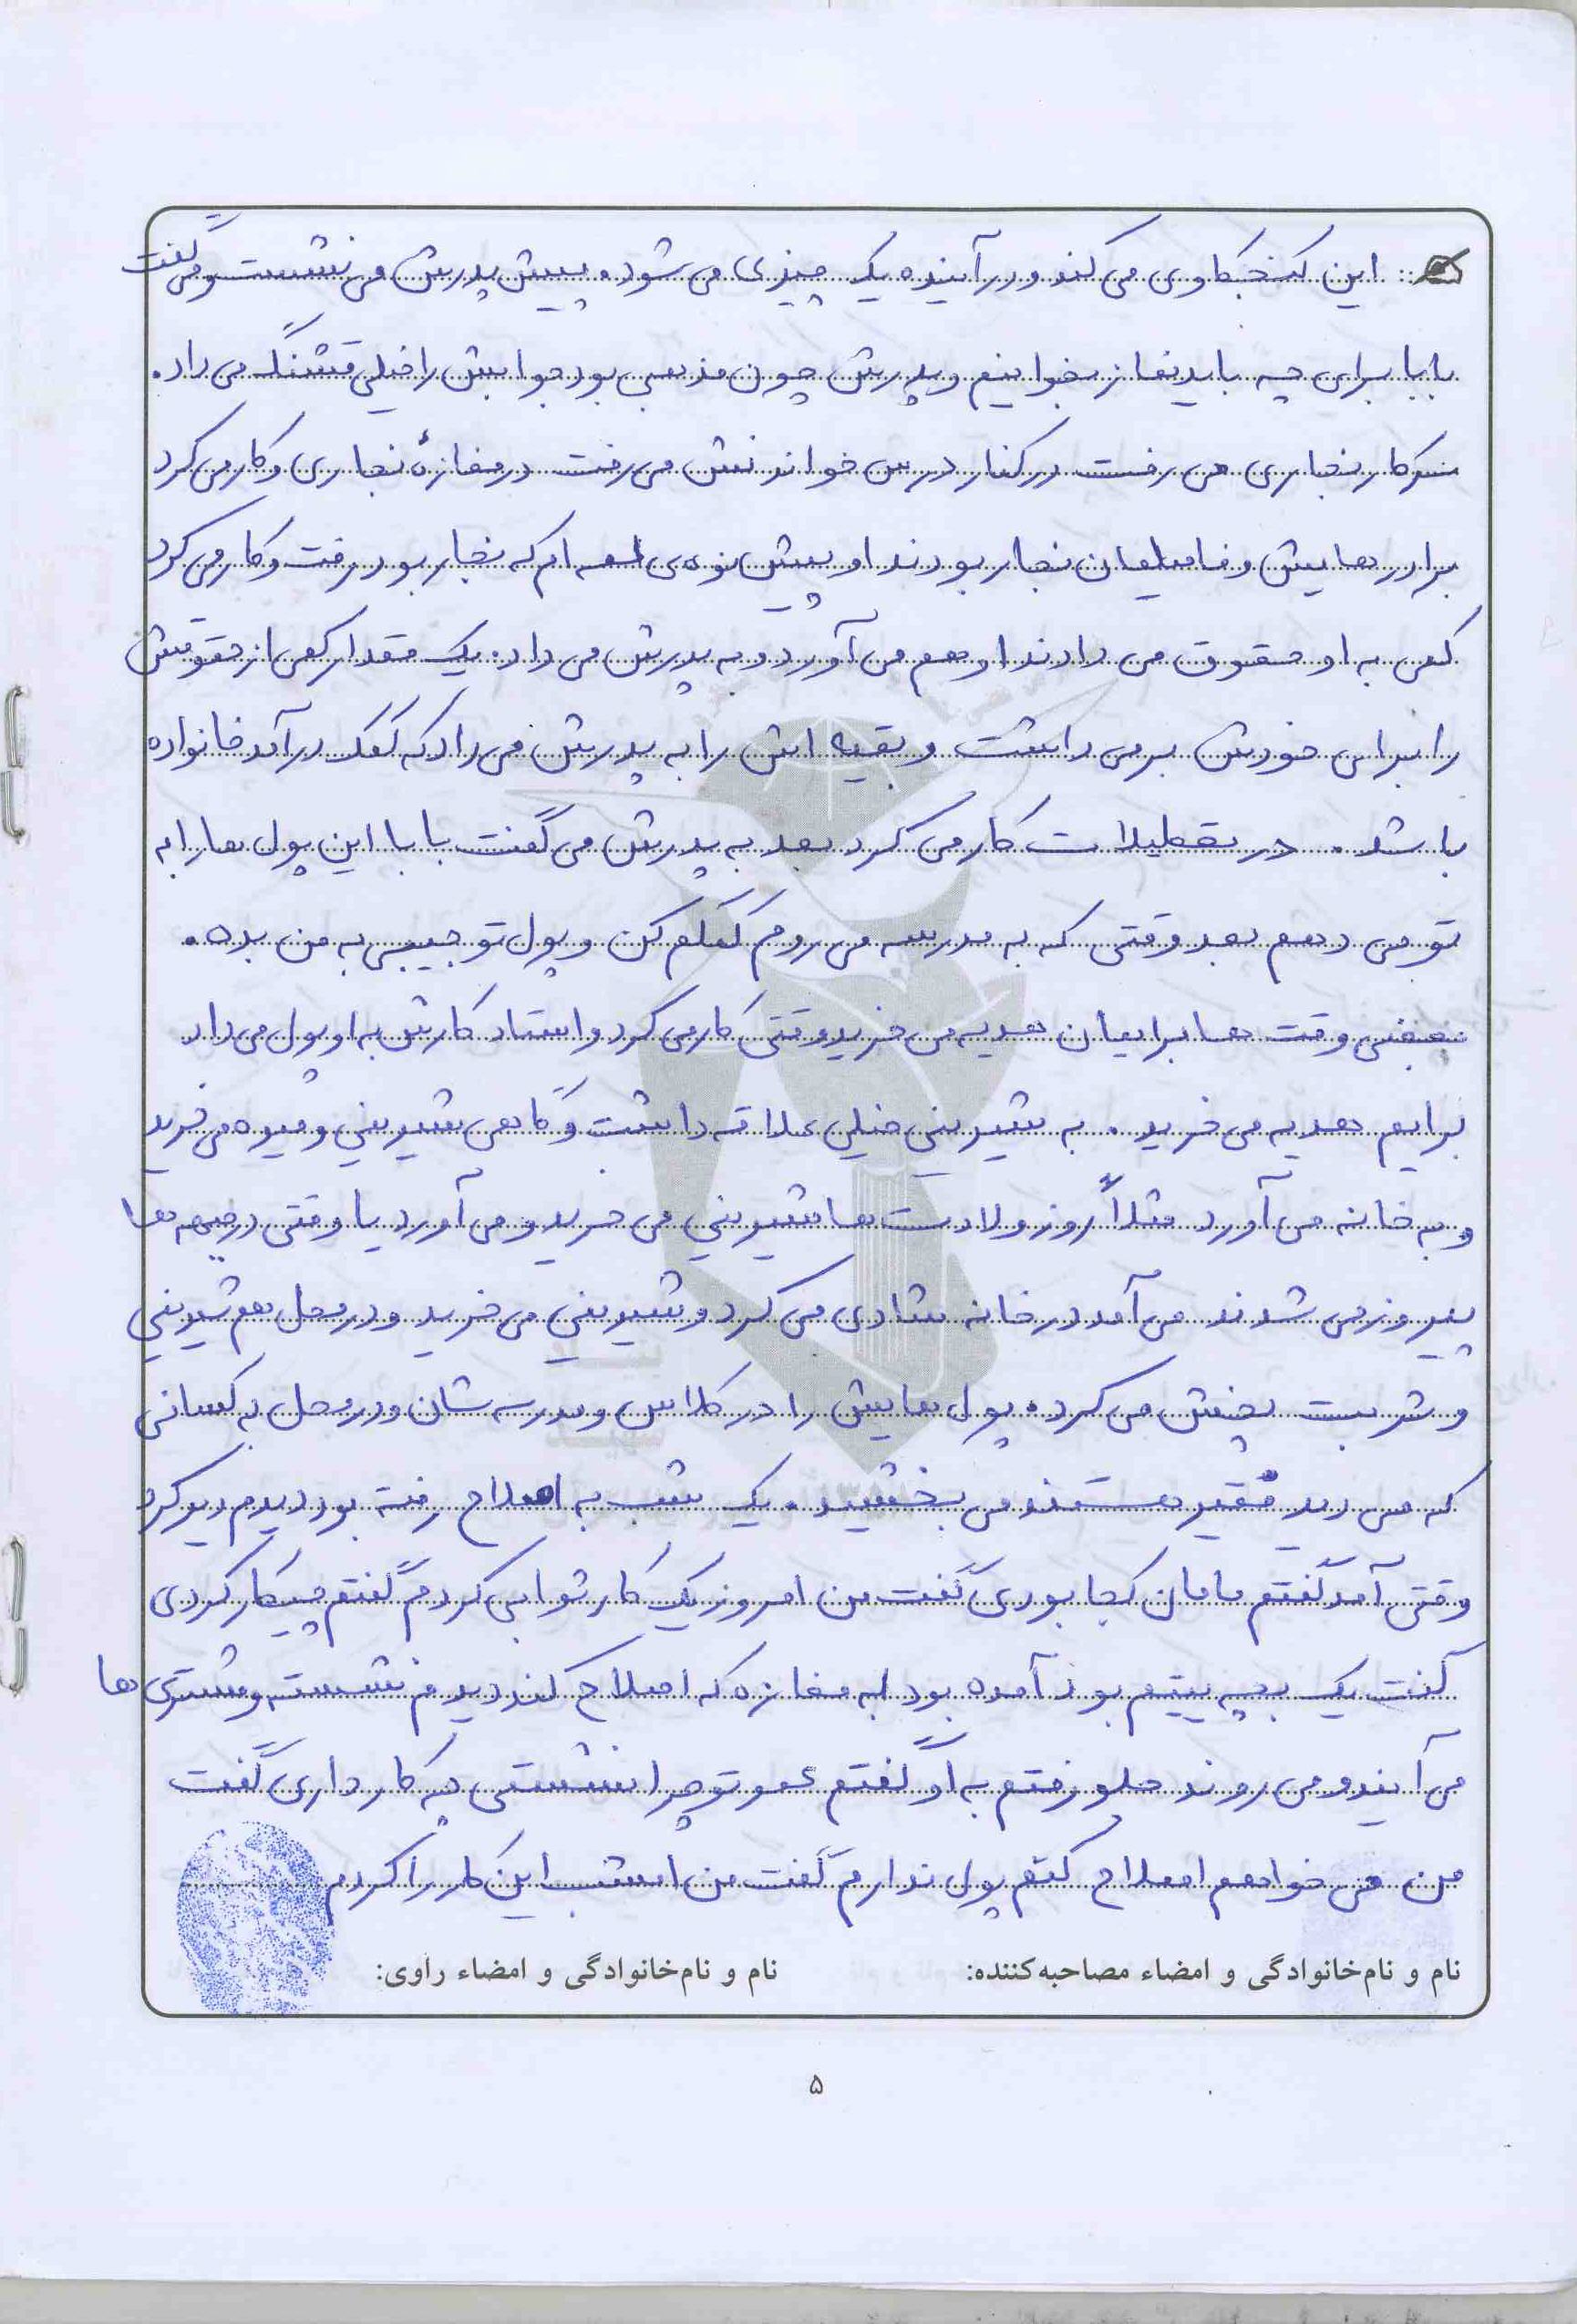 این کنجکاوی می کند و در آینده یک چیزی می شود. پیش پدرش می نشست و می گفت
بابا برای چه باید نماز بخوانیم و پدرش چون مذهبی بود جوابش را خیلی قشنگ می داد.
سرکار نجاری می رفت در کنار درس خواندنش می رفت در مغازهٔ نجاری و کار می کرد
برادرهایش و فامیلمان نجار بودند او پیش نوه ی ام که نجار بود رفت و کار می کرد
کمی به او حقوق می دادند او هم می آورد و به پدرش می داد. یک مقدار کمی از حقوقش
را برای خودش برمی داشت و بقیه اش را به پدرش می داد که کمک درآمد خانواده
باشد. در تعطیلات کار می کرد بعد به پدرش می گفت بابا این پول ها را به
تو می دهم بعد وقتی که به مدرسه می روم کمکم کن و پول تو جیبی به من بده.
بعضی وقت ها برایمان هدیه می خرید وقتی کار می کرد و استاد کارش به او پول می داد
برایم هدیه می خرید. به شیرینی خیلی علاقه داشت و گاهی شیرینی و میوه می خرید
و به خانه می آورد مثلاً روز ولادت ها شیرینی می خرید و می آورد یا وقتی در جبهه ها
پیروز می شدند می آمد در خانه شادی می کرد و شیرینی می خرید و در محل هم شیرینی
و شربت پخش می کرد. پول هایش را در کلاس و مدرسه شان و در محل به کسانی
که می دید فقیر هستند می بخشید. یک شب به اصلاح رفته بود دیدم دیر کرد
وقتی آمد گفتم مامان کجا بودی گفت من امروز یک کار ثوابی کردم گفتم چیکار کردی
گفت یک بچه یتیم بود آمده بود به مغازه که اصلاح کند دیدم نشسته و مشتری ها
می آیند و می روند جلو رفتم به او گفتم عمو تو چرا نشستی چه کار داری گفت
من می خواهم اصلاح کنم پول ندارم گفت من امشب این کار را کردم
نام و نام‌خانوادگی و امضاء مصاحبه‌کننده:
نام و نام‌خانوادگی و امضاء راوی:
۵